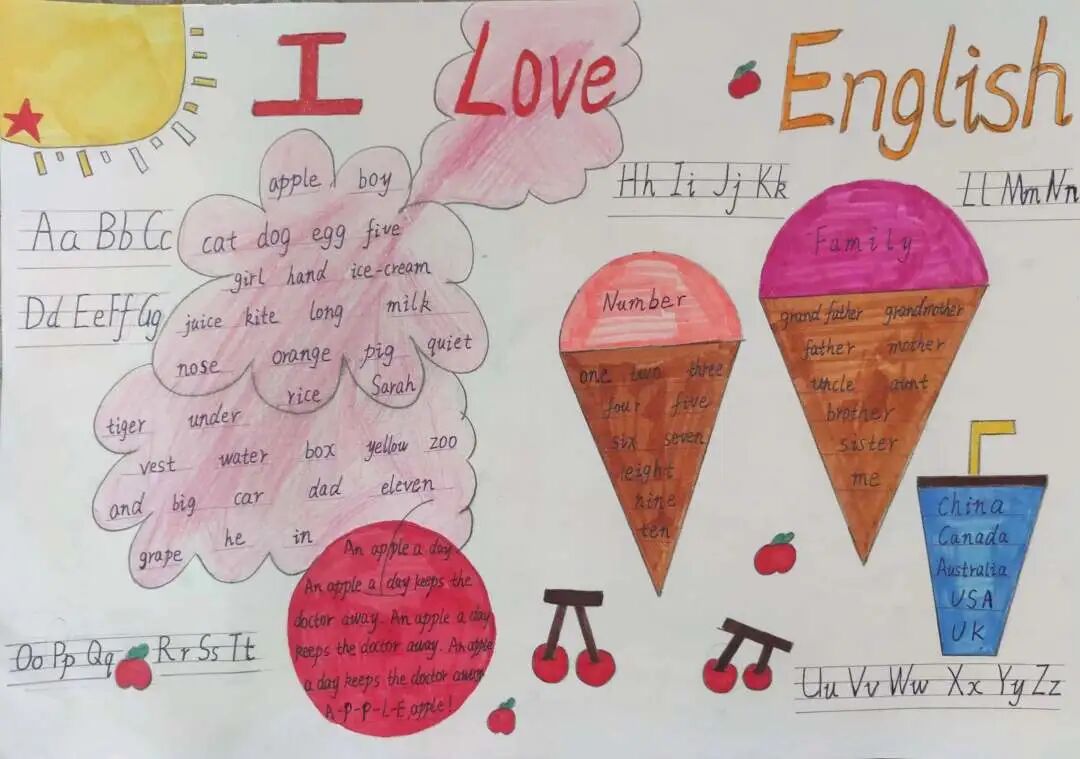 I Love English
Aa Bb Cc
Dd Ee Ff Gg
Hh Ii Jj Kk
Ll Mm Nn
apple boy
cat dog egg five
girl hand ice-cream
juice kite long milk
nose orange pig quiet
rice Sarah
tiger under
vest water box yellow zoo
and big car dad eleven
grape he in
Number
one two three
four five
six seven
eight
nine
ten
Family
grandfather grandmother
father mother
uncle aunt
brother
sister
me
China
Canada
Australia
USA
UK
An apple a day
An apple a day keeps the
doctor away. An apple a day
keeps the doctor away. An apple
a day keeps the doctor away
A-P-P-L-E, apple!
Oo Pp Qq Rr Ss Tt
Uu Vv Ww Xx Yy Zz